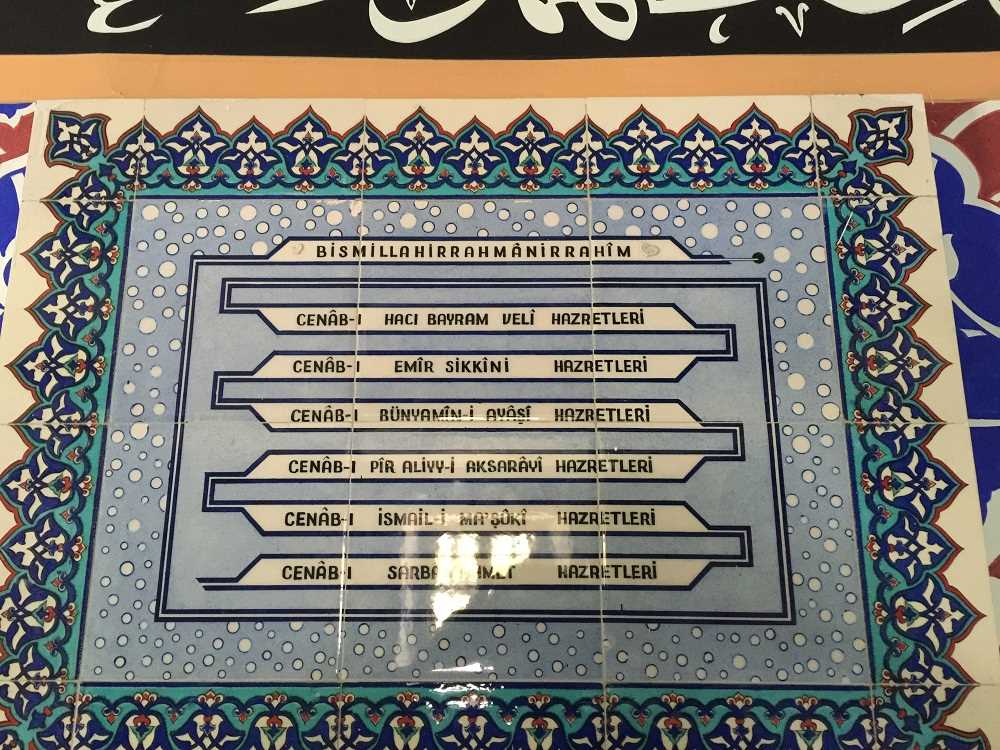 BİSMİLLAHİRRAHMÂNİRRAHÎM
CENÂB-I HACI BAYRAM VELÎ HAZRETLERİ
CENÂB-I EMÎR SİKKÎNİ HAZRETLERİ
CENÂB-I BÜNYAMÎN-İ AYÂŞÎ HAZRETLERİ
CENÂB-I PÎR ALİYY-İ AKSARÂYÎ HAZRETLERİ
CENÂB-I İSMAİL-İ MA'ŞÛKÎ HAZRETLERİ
CENÂB-I HAZRETLERİ